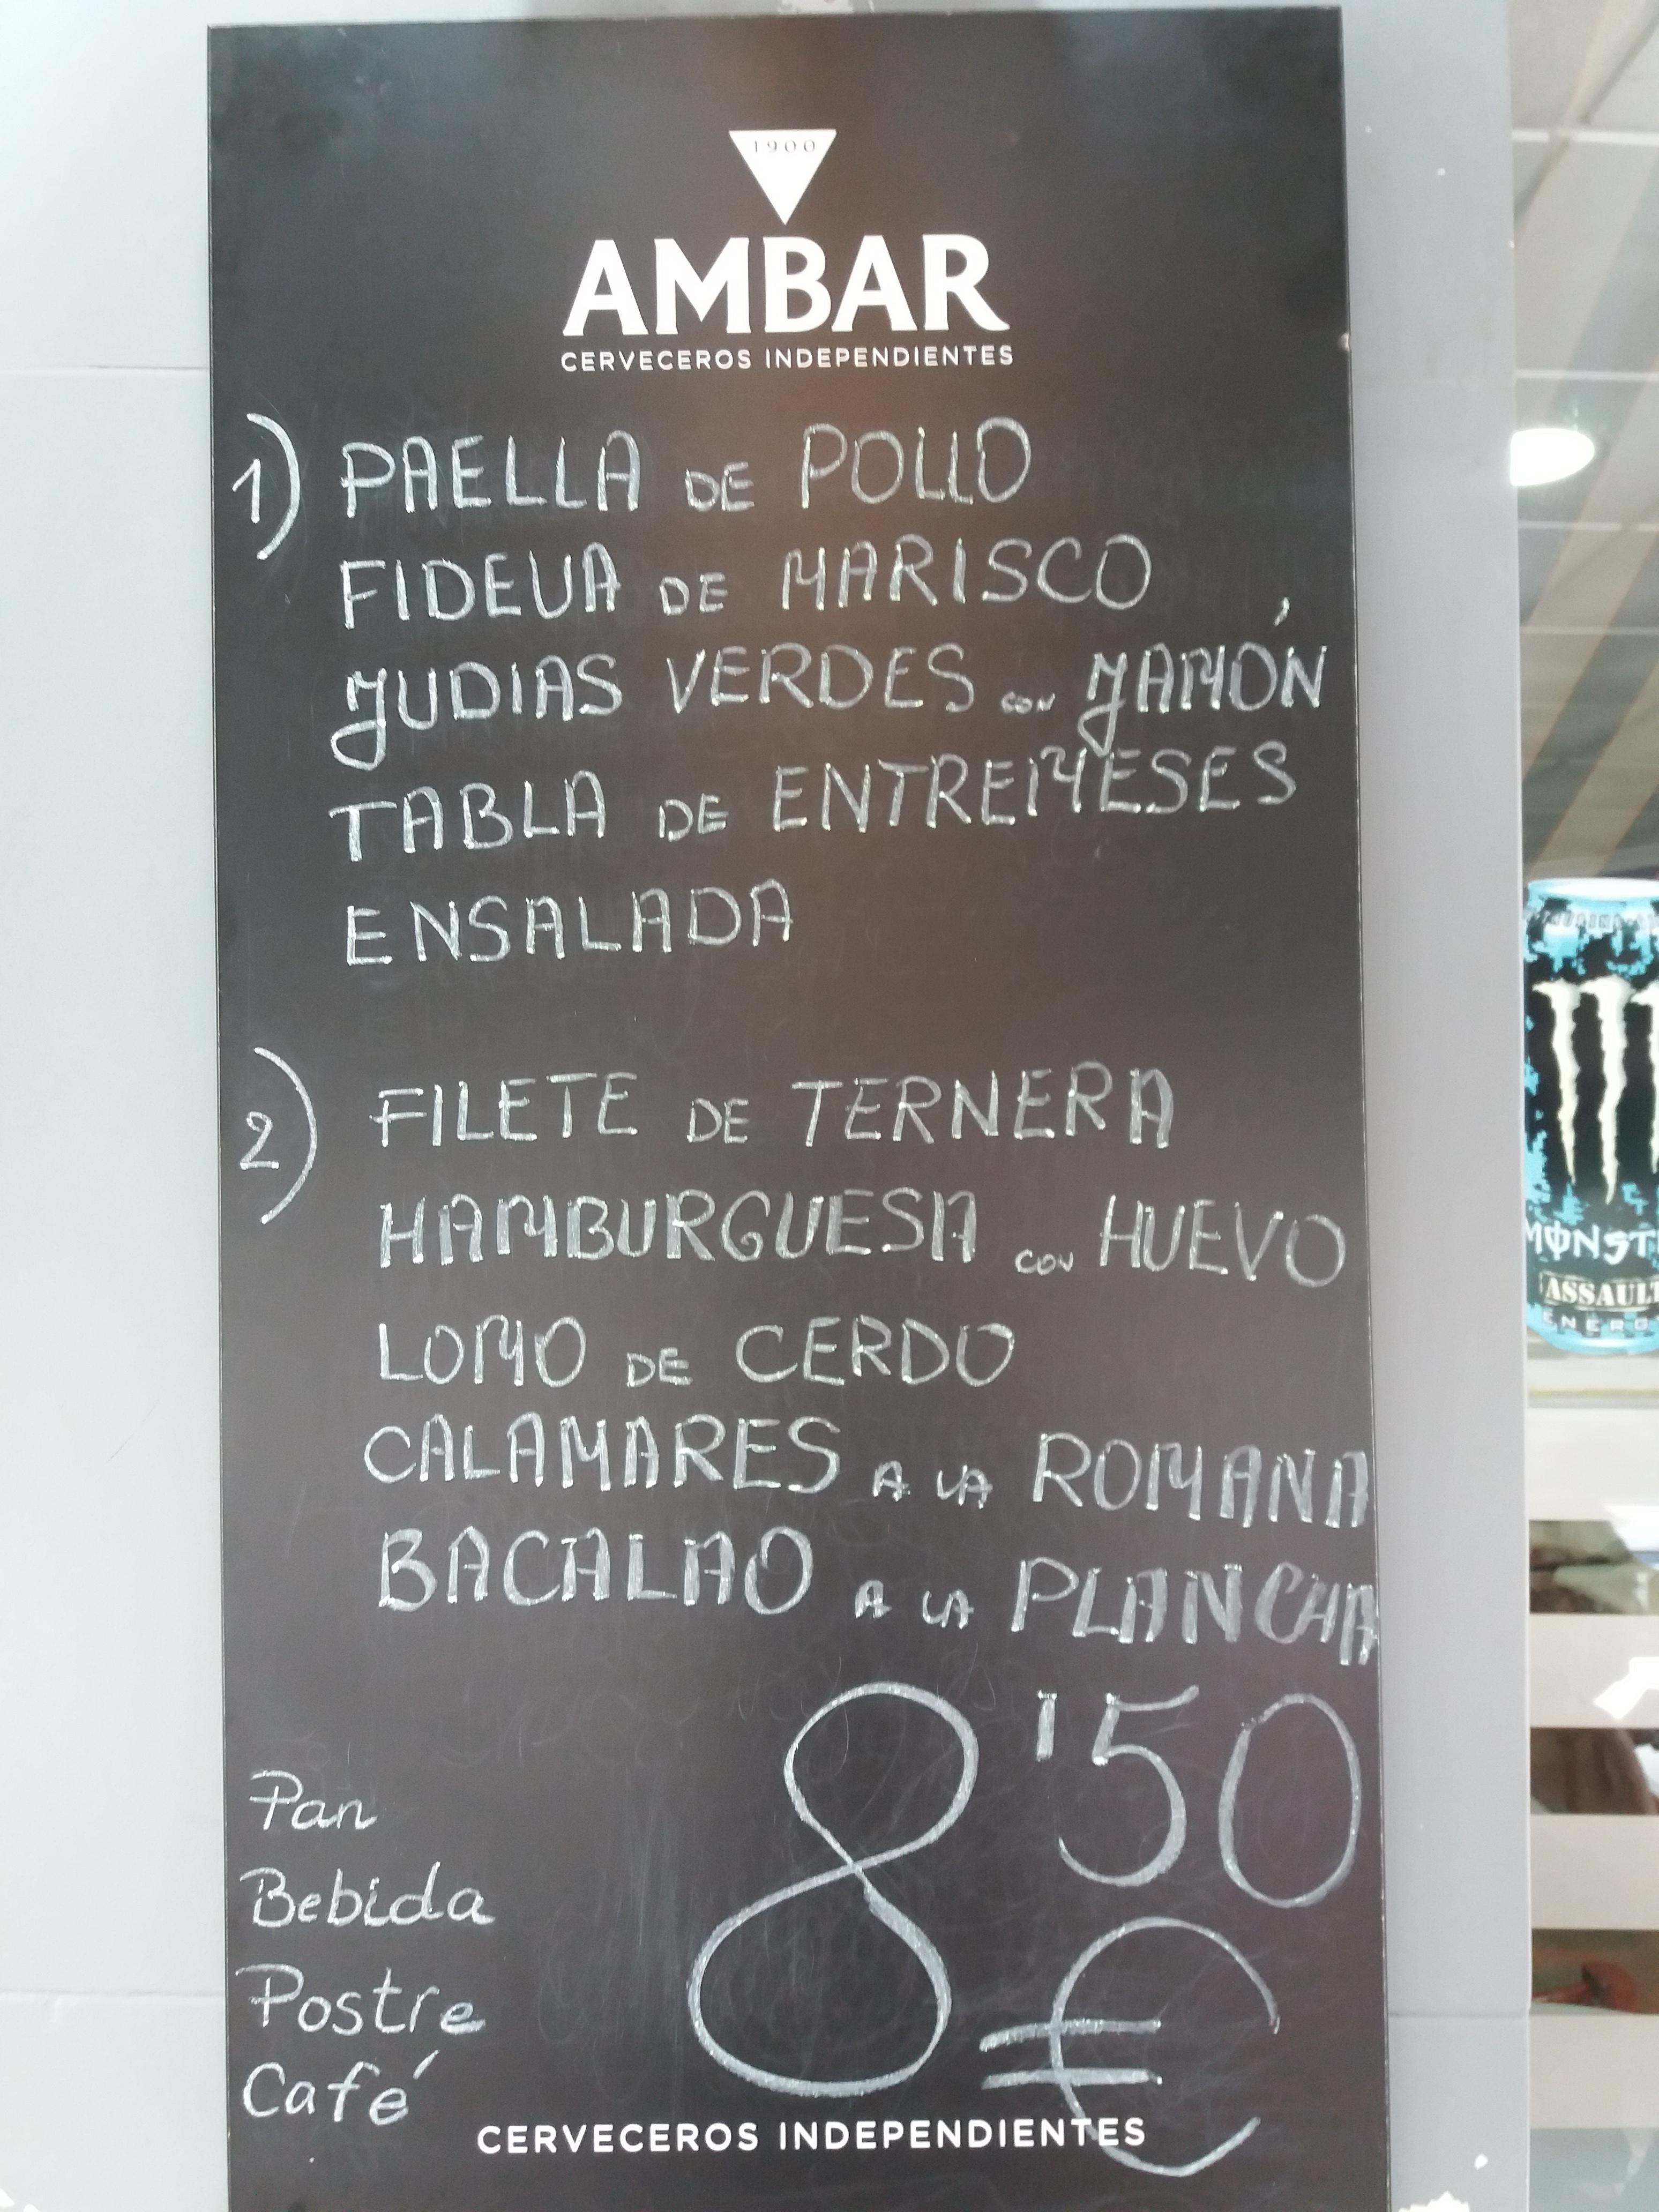 1900
AMBAR
CERVECEROS INDEPENDIENTES
1) PAELLA DE POLLO
FIDEUA DE MARISCO
JUDIAS VERDES CON JAMÓN
TABLA DE ENTREMESES
ENSALADA
2) FILETE DE TERNERA
HAMBURGUESA CON HUEVO
LOMO DE CERDO
CALAMARES A LA ROMANA
BACALAO A LA PLANCHA
8'50
€
Pan
Bebida
Postre
Café
CERVECEROS INDEPENDIENTES
MONST
ASSAULT
ENERG